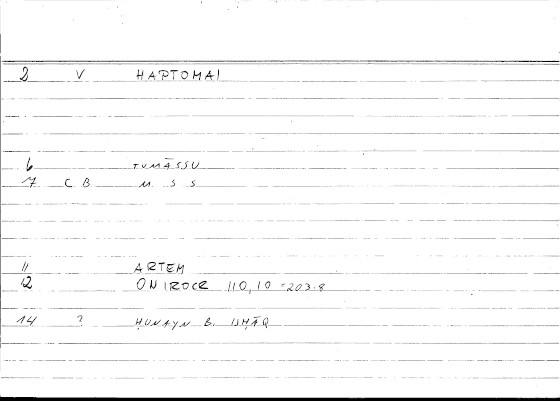 2 V HAPTOMAI
6 TUMĀSSU
7 C B M S S
11 ARTEM
12 ONIROCR 110,10 203.8
14 ? ḤUNAYN B. ISḤĀQ